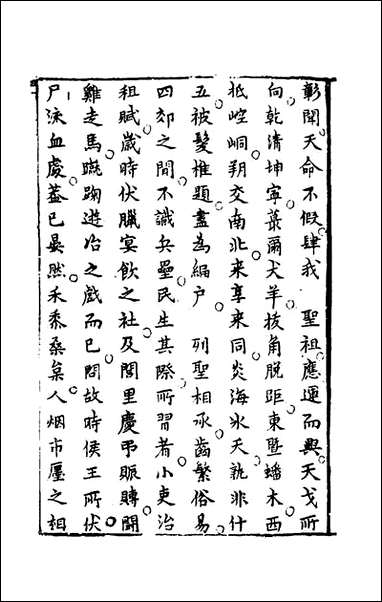 彰聞天命不假肆我　聖祖應運而興天戈所
向乾清坤寧蕞爾犬羊拔角脫距東暨蟠木西
抵崆峒朔交南北来享来同炎海氷天孰非什
五被髮椎題盡為編户　列聖相承齒繁俗易
四郊之間不識兵壘民生其際所習者小吏治
租賦歲時伏臘宴飲之社及閭里慶弔賑賻鬪
雞走馬蹴踘遊冶之戲而已問故時侯王所伏
尸泳血處蓋已晏然禾黍桑枲人烟市廛之相